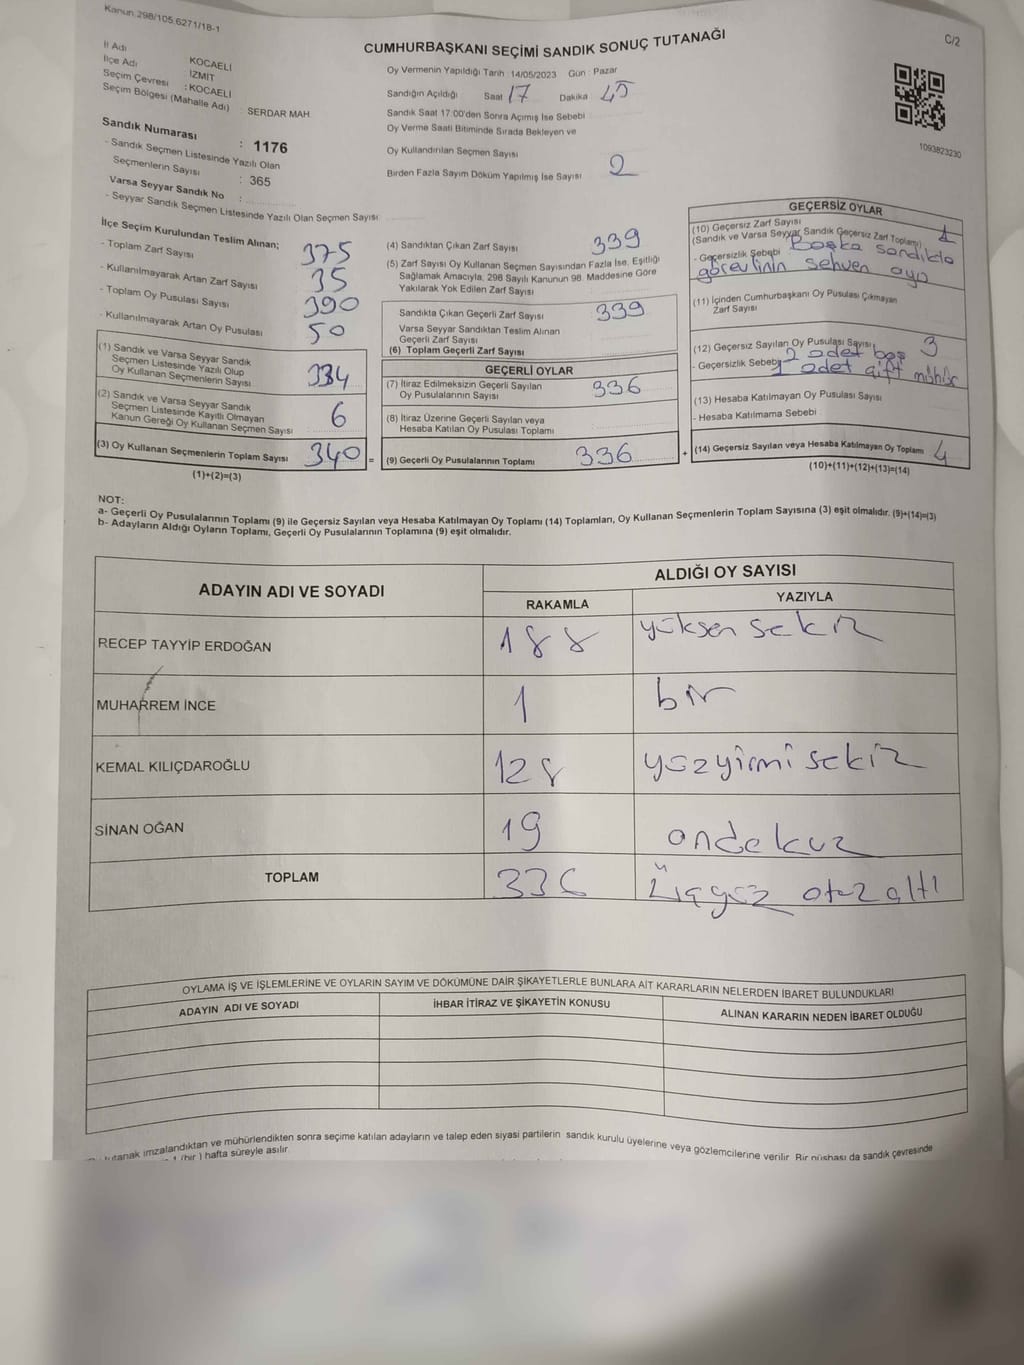 Kanun.298/105,6271/18-1
C/2
CUMHURBAŞKANI SEÇİMİ SANDIK SONUÇ TUTANAĞI
İl Adı KOCAELİ
İlçe Adı İZMİT
Seçim Çevresi : KOCAELİ
Seçim Bölgesi (Mahalle Adı) : SERDAR MAH.
Sandık Numarası : 1176
- Sandık Seçmen Listesinde Yazılı Olan
Seçmenlerin Sayısı : 365
Varsa Seyyar Sandık No :
- Seyyar Sandık Seçmen Listesinde Yazılı Olan Seçmen Sayısı
Oy Vermenin Yapıldığı Tarih : 14/05/2023 Gün : Pazar
Sandığın Açıldığı Saat 17 Dakika 45
Sandık Saat 17:00'den Sonra Açımış İse Sebebi
Oy Verme Saati Bitiminde Sırada Bekleyen ve
Oy Kullandırılan Seçmen Sayısı
Birden Fazla Sayım Döküm Yapılmış İse Sayısı 2
1093823230
İlçe Seçim Kurulundan Teslim Alınan;
- Toplam Zarf Sayısı 375
- Kullanılmayarak Artan Zarf Sayısı 35
- Toplam Oy Pusulası Sayısı 390
- Kullanılmayarak Artan Oy Pusulası 50
(1) Sandık ve Varsa Seyyar Sandık
Seçmen Listesinde Yazılı Olup
Oy Kullanan Seçmenlerin Sayısı 334
(2) Sandık ve Varsa Seyyar Sandık
Seçmen Listesinde Kayıtlı Olmayan
Kanun Gereği Oy Kullanan Seçmen Sayısı 6
(3) Oy Kullanan Seçmenlerin Toplam Sayısı 340 =
(1)+(2)=(3)
(4) Sandıktan Çıkan Zarf Sayısı 339
(5) Zarf Sayısı Oy Kullanan Seçmen Sayısından Fazla İse, Eşitliği
Sağlamak Amacıyla, 298 Sayılı Kanunun 98. Maddesine Göre
Yakılarak Yok Edilen Zarf Sayısı
Sandıkta Çıkan Geçerli Zarf Sayısı 339
Varsa Seyyar Sandıktan Teslim Alınan
Geçerli Zarf Sayısı
(6) Toplam Geçerli Zarf Sayısı
GEÇERLİ OYLAR
(7) İtiraz Edilmeksizin Geçerli Sayılan
Oy Pusulalarının Sayısı 336
(8) İtiraz Üzerine Geçerli Sayılan veya
Hesaba Katılan Oy Pusulası Toplamı
(9) Geçerli Oy Pusulalarının Toplamı 336 +
GEÇERSİZ OYLAR
(10) Geçersiz Zarf Sayısı
(Sandık ve Varsa Seyyar Sandık Geçersiz Zarf Toplamı) 1
- Geçersizlik Sebebi Başka sandıkda
görevlinin sehven oyu
(11) İçinden Cumhurbaşkanı Oy Pusulası Çıkmayan
Zarf Sayısı
(12) Geçersiz Sayılan Oy Pusulası Sayısı 3
- Geçersizlik Sebebi 2 adet boş
1 adet çift mühür
(13) Hesaba Katılmayan Oy Pusulası Sayısı
- Hesaba Katılmama Sebebi
(14) Geçersiz Sayılan veya Hesaba Katılmayan Oy Toplamı 4
(10)+(11)+(12)+(13)=(14)
NOT:
a- Geçerli Oy Pusulalarının Toplamı (9) ile Geçersiz Sayılan veya Hesaba Katılmayan Oy Toplamı (14) Toplamları, Oy Kullanan Seçmenlerin Toplam Sayısına (3) eşit olmalıdır. (9)+(14)=(3)
b- Adayların Aldığı Oyların Toplamı, Geçerli Oy Pusulalarının Toplamına (9) eşit olmalıdır.
ADAYIN ADI VE SOYADI ALDIĞI OY SAYISI
RAKAMLA YAZIYLA
RECEP TAYYİP ERDOĞAN 188 yüksen sekiz
MUHARREM İNCE 1 bir
KEMAL KILIÇDAROĞLU 128 yüzyirmi sekiz
SİNAN OĞAN 19 ondokuz
TOPLAM 336 Üçyüz otuz altı
OYLAMA İŞ VE İŞLEMLERİNE VE OYLARIN SAYIM VE DÖKÜMÜNE DAİR ŞİKAYETLERLE BUNLARA AİT KARARLARIN NELERDEN İBARET BULUNDUKLARI
ADAYIN ADI VE SOYADI İHBAR İTİRAZ VE ŞİKAYETİN KONUSU ALINAN KARARIN NEDEN İBARET OLDUĞU
tutanak imzalandıktan ve mühürlendikten sonra seçime katılan adayların ve talep eden siyasi partilerin sandık kurulu üyelerine veya gözlemcilerine verilir. Bir nüshası da sandık çevresinde
1 (bir) hafta süreyle asılır.